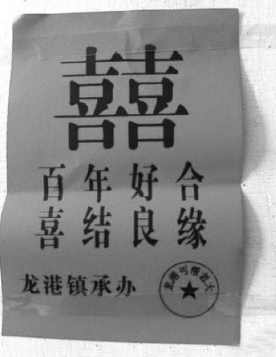 囍
百年好合
喜结良缘
龙港镇承办